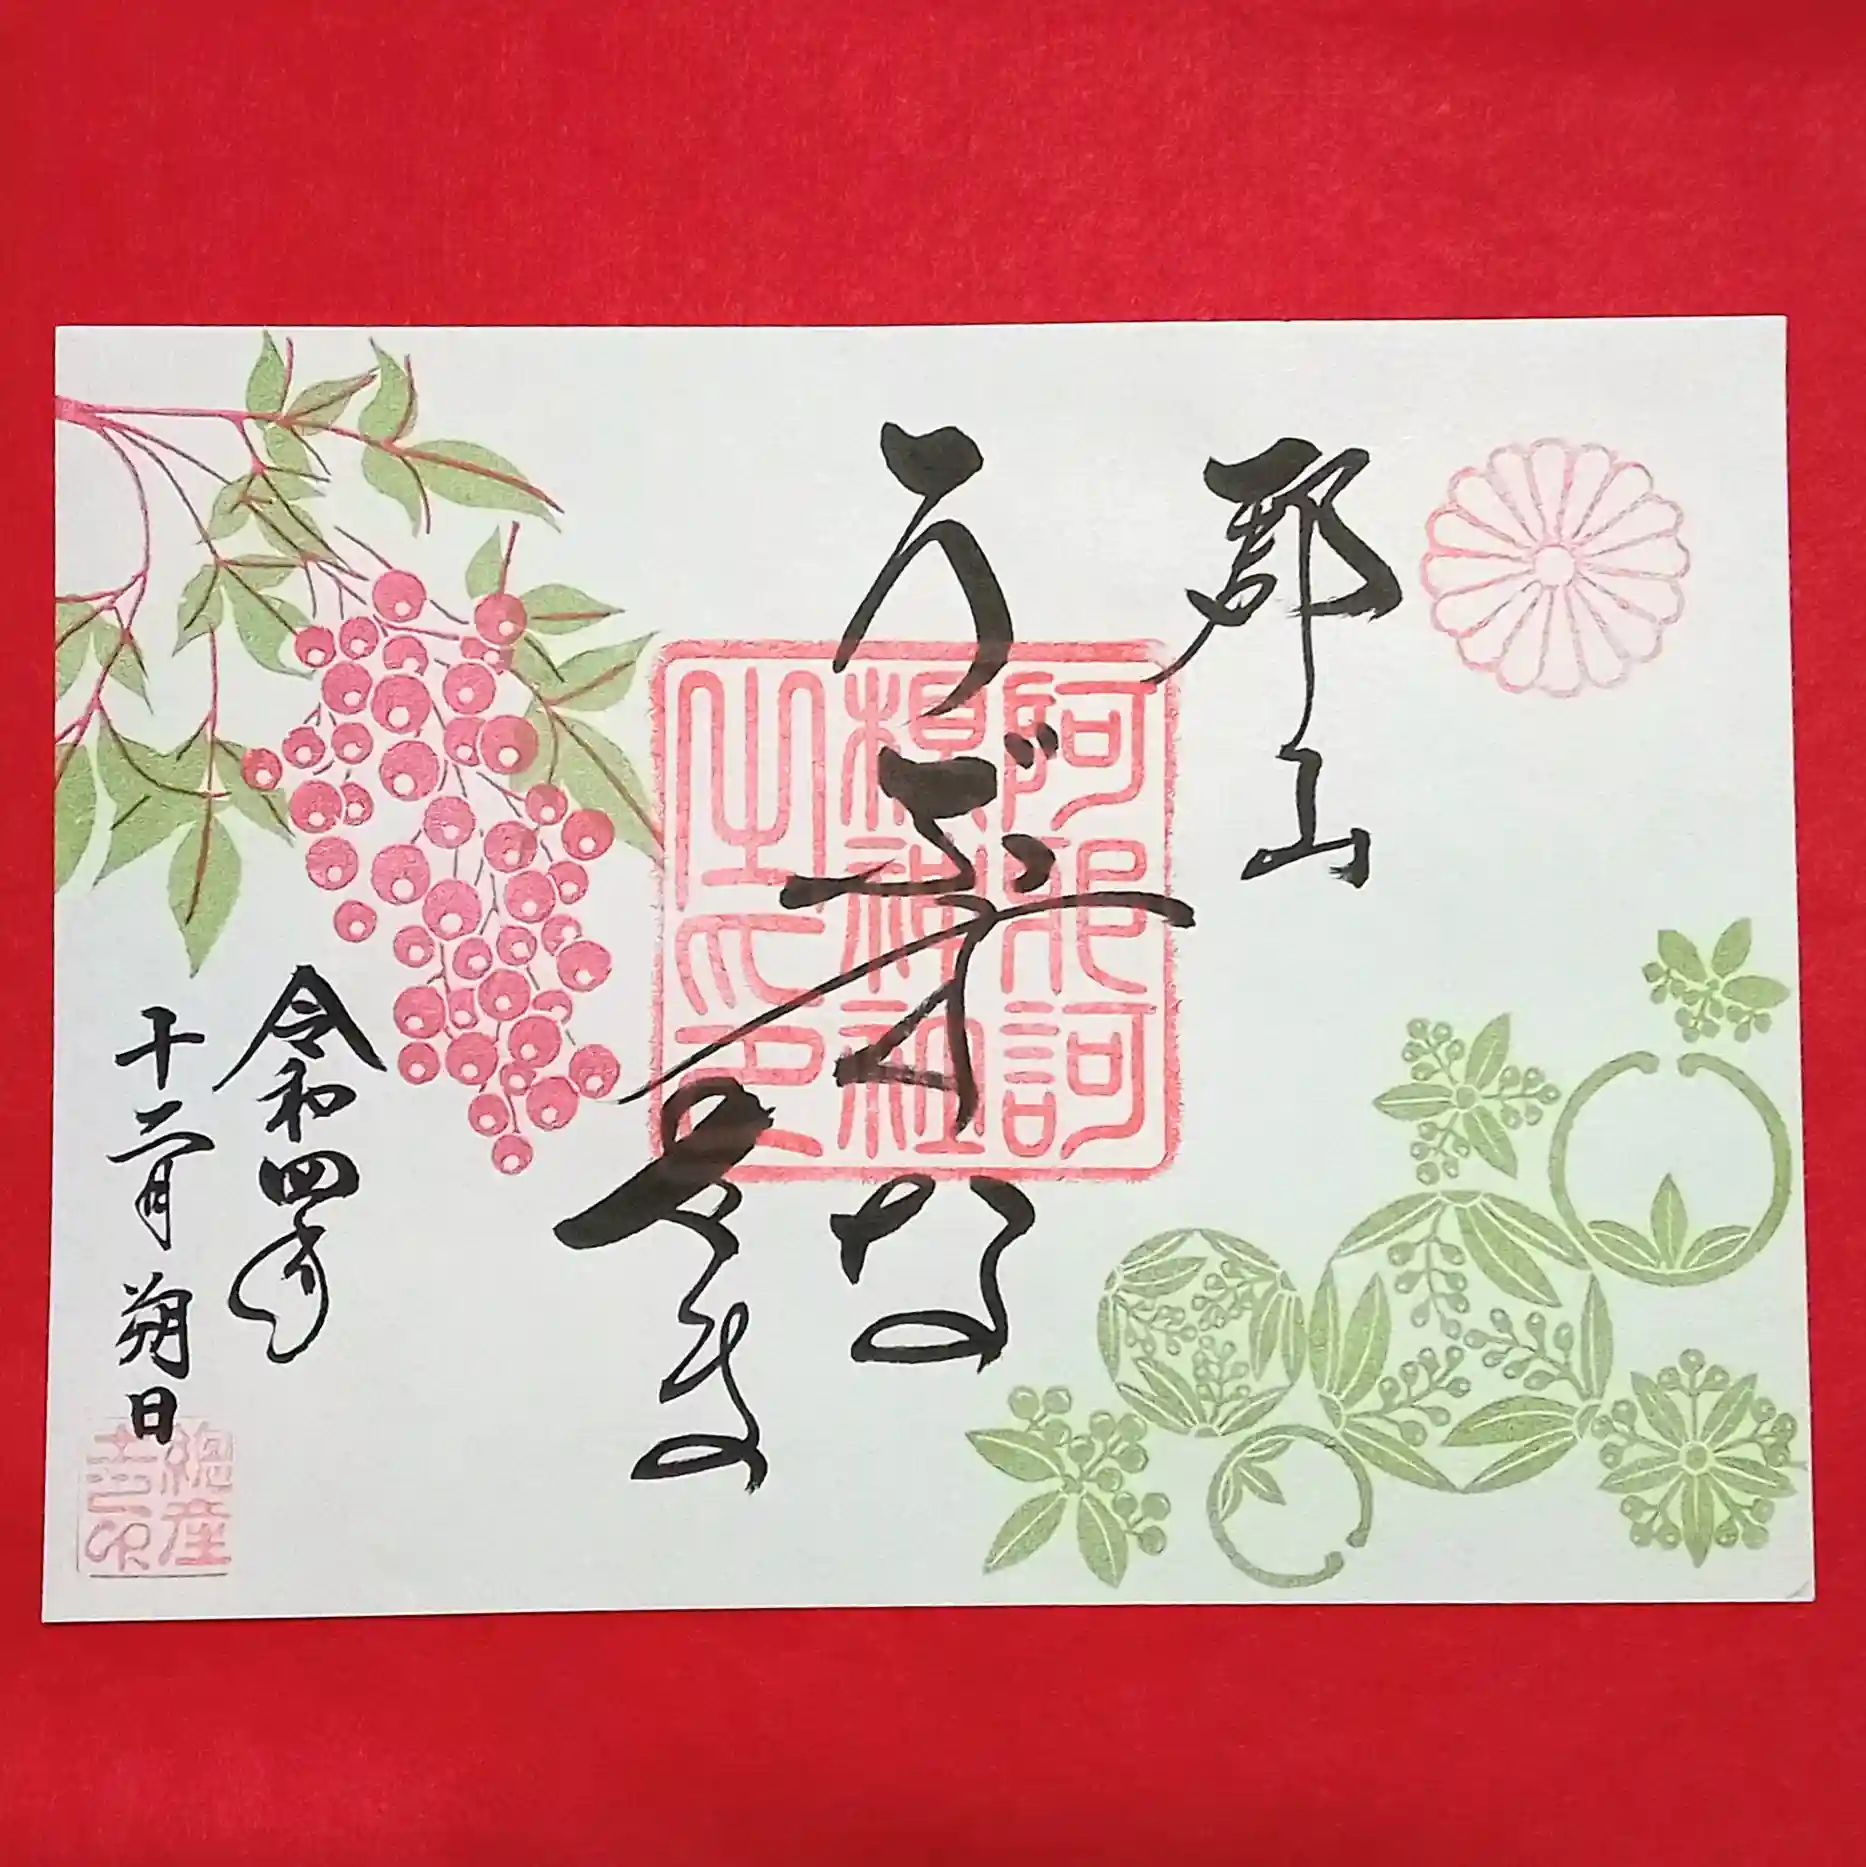 郡山
うぶすな
さま
阿邪訶
根神社
之印
令和四年
十二月朔日